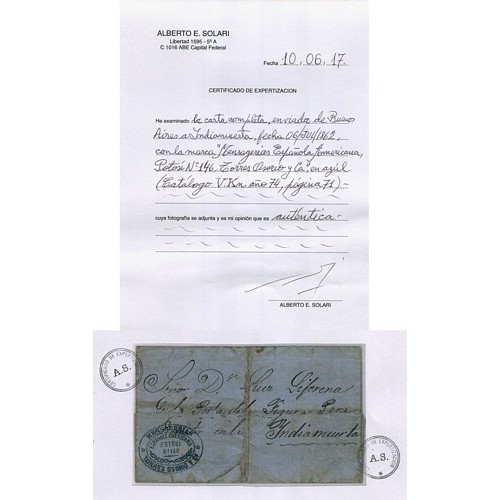 ALBERTO E. SOLARI
Libertad 1595 - 5º A
C 1016 ABE Capital Federal
Fecha 10.06.17.
CERTIFICADO DE EXPERTIZACION
He examinado la carta completa, enviada de Buenos
Aires a Indiamuerta, fecha 06/JUL/1862,
con la marca "Mensagerias Española Americana,
Potosí Nº 146, Torres Osorio y Ca" en azul
(Catálogo V.Kn. año 74, página 71)-
cuya fotografía se adjunta y es mi opinión que es auténtica-
ALBERTO E. SOLARI
CERTIFICADO DE EXPERTIZACION
A.S.
Señor Dn Luiz
de la Posta del
Indiamuerta
ESPAÑOLA AMERICANA
POTOSI
Nº 146
TORRES OSORIO Y Ca
A.S.